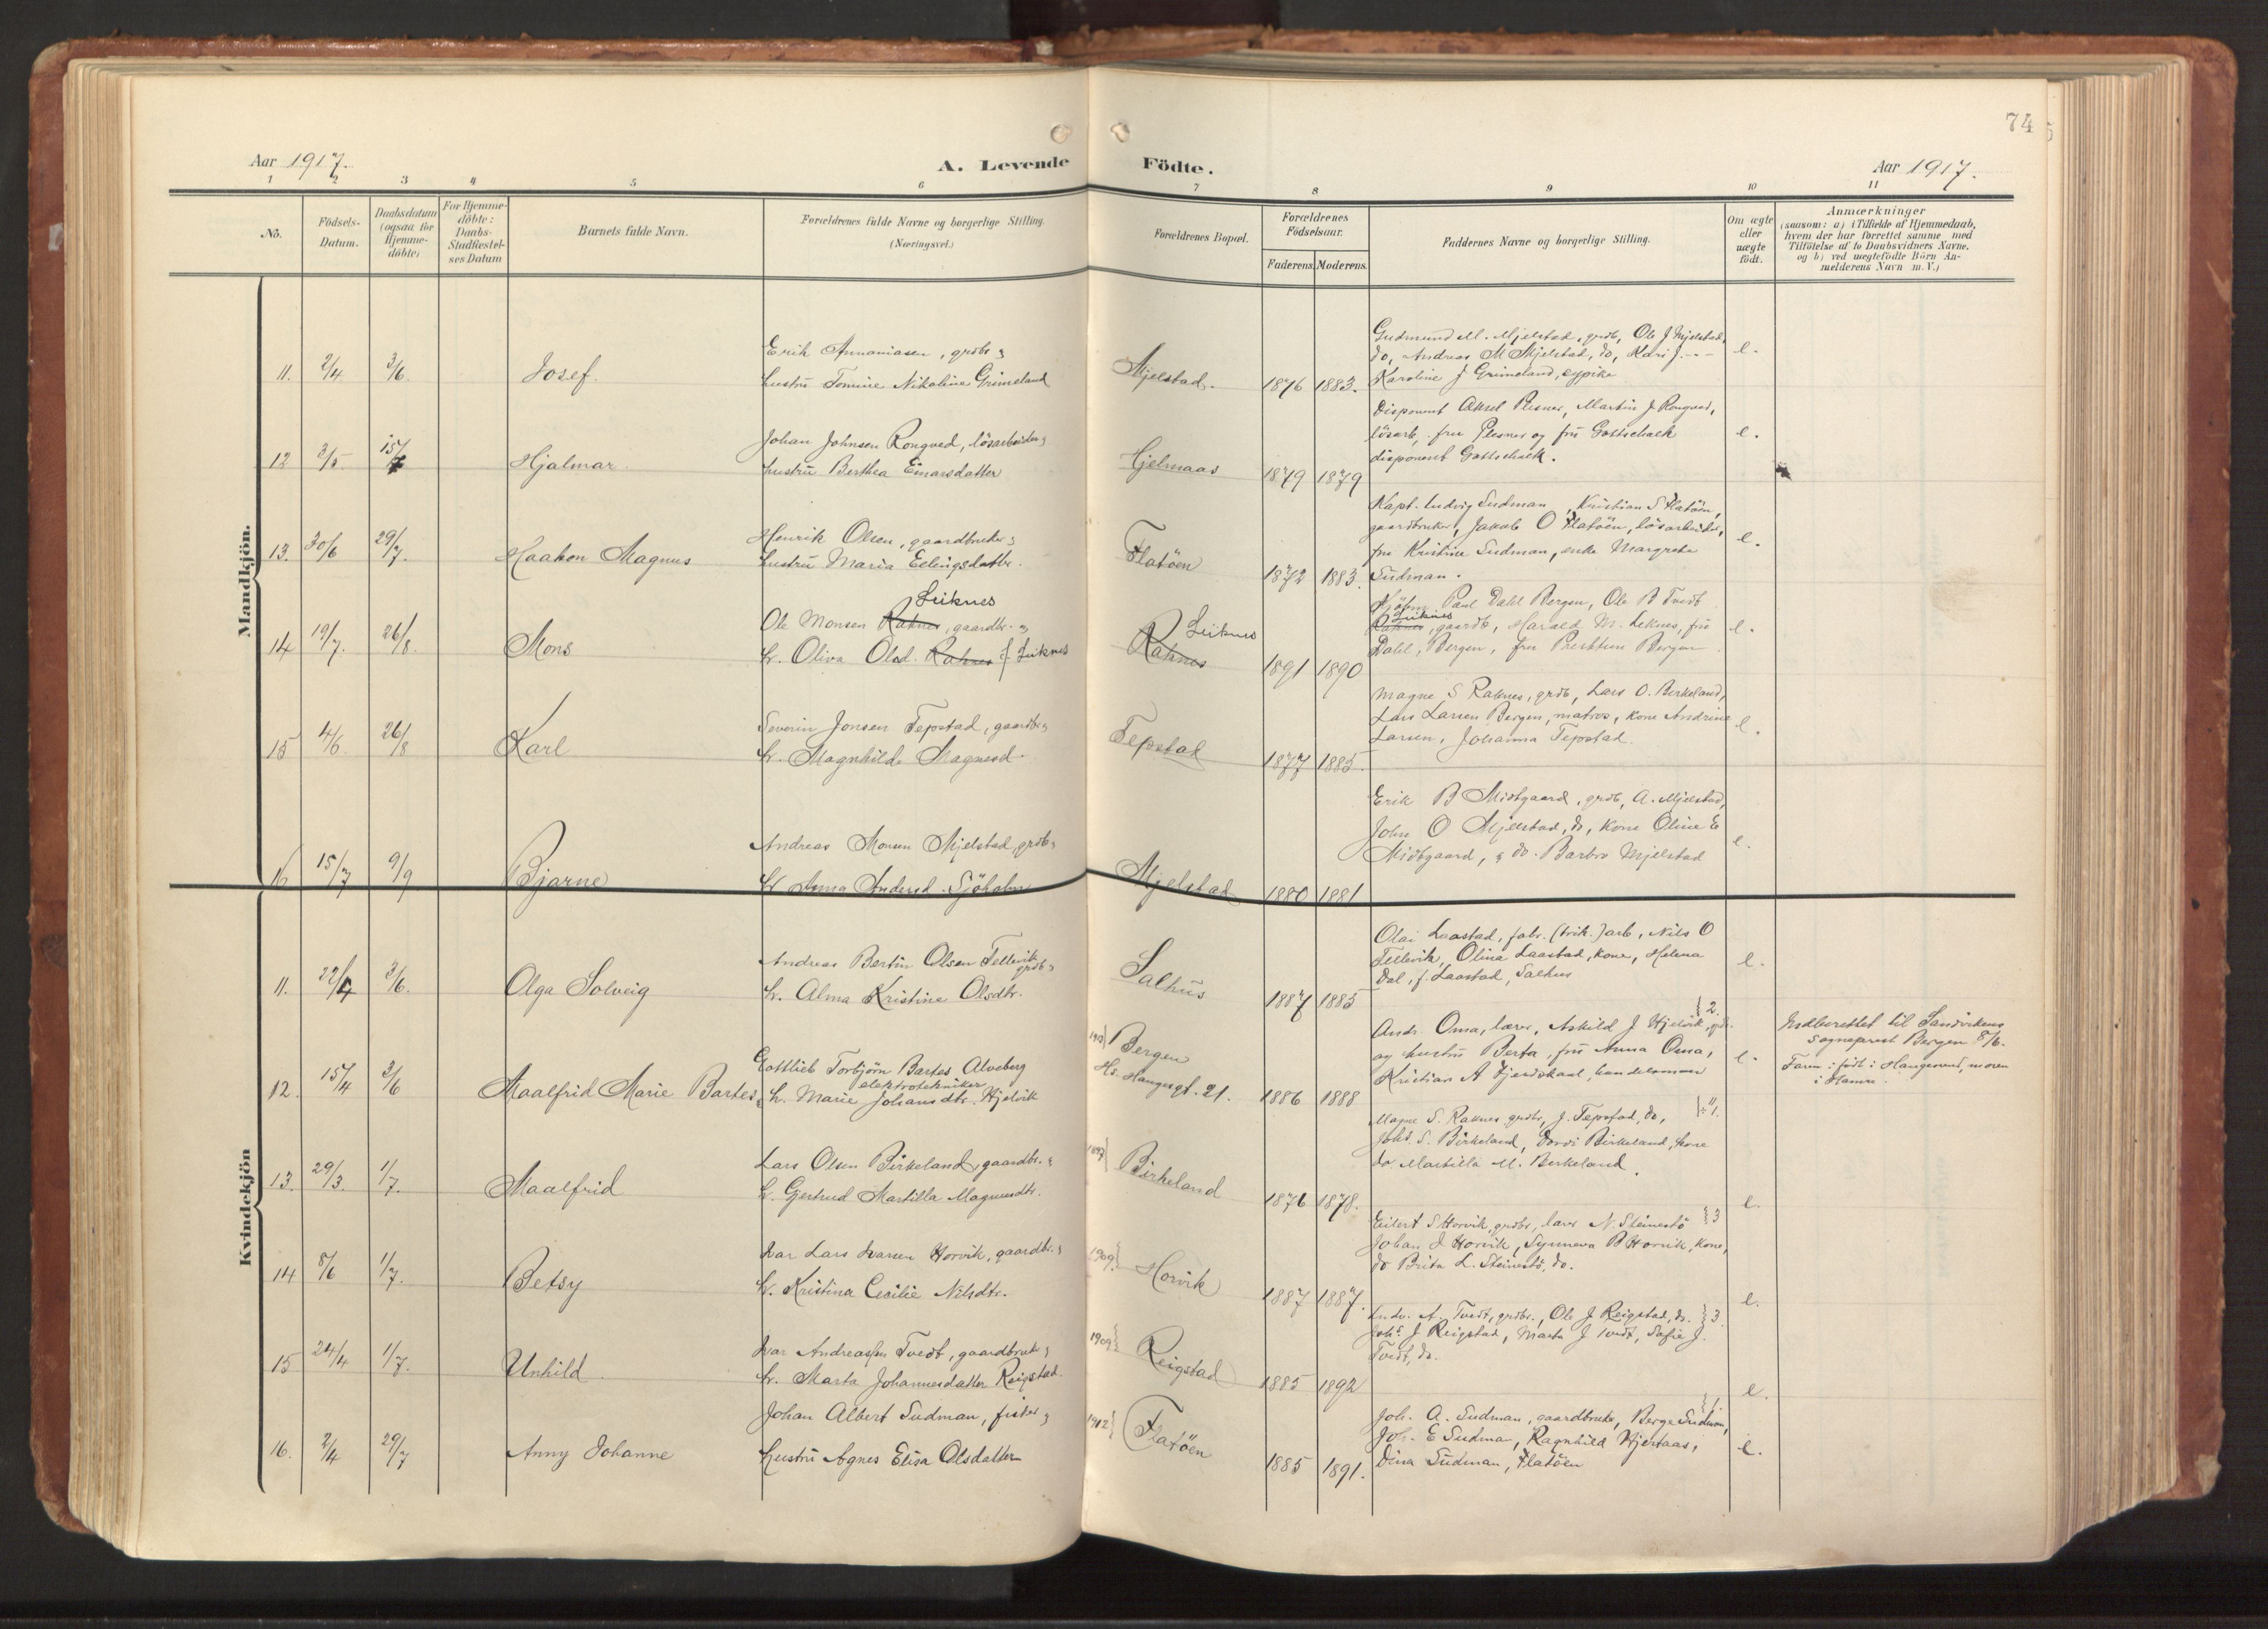 74
Aar 1917.
A. Levende Födte.
Aar 1917.
1 2 3 4 5 6 7 8 9 10 11
No.
Födsels-
Datum.
Daabsdatum
(ogsaa for
Hjemme-
döbte)
For Hjemme-
döbte:
Daabs-
Stadfæstel-
ses Datum
Barnets fulde Navn.
Forældrenes fulde Navne og borgerlige Stilling.
(Næringsvei.)
Forældrenes Bopæl.
Forældrenes
Födselsaar.
Faderens. Moderens.
Faddernes Navne og borgerlige Stilling.
Om ægte
eller
uægte
födt.
Anmærkninger
(saasom: a) i Tilfælde af Hjemmedaab,
hvem der har forrettet samme med
Tilföielse af to Daabsvidners Navne,
og b) ved uægtefödte Börn An-
melderens Navn m. V.)
Mandkjön.
11. 2/4 3/6. Josef.
Erik Annaniasen, grdbr &
hustru Tomine Nikoline Grimeland
Mjelstad. 1876 1883.
Gudmund M. Mjelstad, grdb, Ole J Mjelstad,
do, Andreas M Mjelstad, do, Kari J. - -
Karoline J Grimeland, e. pike
e.
12 3/5 15/7 Hjalmar.
Johan Johnsen Rongved, lösarbeider &
hustru Berthea Einarsdatter
Hjelmaas 1879 1879
Disponent Aksel Plesner, Martin J Rongved,
lösarb, fru Plesner og fru Gottschalk
disponent Gottschalk.
e.
13. 30/6 29/7. Haakon Magnus
Henrik Olsen, gaardbruker &
hustru Maria Erlingsdatter.
Flatöen 1872 1883.
Kapt. Ludvig Sudman, Kristian S Flatöen,
gaardbruker, Jakob O Flatöen, lösarbeider,
fru Kristine Sudman, enke Margrete
Sudman.
e.
14 19/7. 26/8. Mons
Leiknes
Ole Monsen Raknes, gaardbr. &
h. Oliva Olsd. Raknes f. Leiknes
Leiknes
Raknes 1891 1890
Paul Dahl Bergen, Ole B Tvedt
Leiknes
Raknes, gaardb, Harald M. Leknes, fru
Dahl, Bergen, fru Bergen
e.
15 4/6. 26/8 Karl
Severin Jonsen Tepstad, gaardbr &
h. Magnhilde Magnesd.
Tepstad 1877 1885.
Magne S Raknes, grdb, Lars O. Birkeland,
Lars Larsen Bergen, matros, kone Andrine
Larsen, Johanna Tepstad.
e.
16 15/7 9/9 Bjarne
Andreas Monsen Mjelstad, grdb &
h. Anna Andersd. Sjöholm
Mjelstad 1880 1881
Erik B Midtgaard, grdb, A. Mjelstad,
John O Mjelstad, do, kone Oline E
Midtgaard, & do. Barbro Mjelstad
e.
Kvindekjön
11. 22/4 3/6. Olga Solveig
Andreas Bertin Olsen Tellevik
grdb &
h. Alma Kristine Olsdtr.
Salhus 1887 1885
Olai Laastad, fabr. (trik.) arb, Nils O
Tellevik, Olina Laastad, kone, Helena
Dal, f. Laastad, Salhus
e.
12. 15/4 3/6 Maalfrid Marie Bartes
Gottlieb Torbjörn Bartes Alveberg
elektrotekniker
& h. Marie Johansdtr. Hjelvik
Bergen
Hs. Haugesgt. 21. 1886 1888
2.
Andr. Oma, lærer, Askild J Hjelvik, grdb.
og hustru Berta, fru Anna Oma,
Kristian A Fjeldskaal, handelsmann
e.
Indberettet til Sandvikens
sogneprest Bergen 8/6.
Faren: födt i Haugesund, moren
i Hamre.
13. 29/3. 1/7. Maalfrid
Lars Olsen Birkeland, gaardbr. &
h. Gertrud Martilla Magnusdtr.
1897 Birkeland 1876 1878.
Magne S. Raknes grdbr, J. Tepstad, do,
Johs. S. Birkeland, Dordi Birkeland, kone
do Martilla M. Birkeland.
e.
14 8/6 1/7. Betsy
Ivar Lars Ivarsen Horvik, gaardbr. &
h. Kristina Cecilie Nilsdtr.
1909. Horvik 1887 1887.
3
Eilert S Horvik, grdbr, lærer N. Steinestö
Johan I Horvik, Synneva B Horvik, kone,
do Brita L. Steinestö, do.
e.
15 24/4 1/7. Unhild.
Ivar Andreassen Tvedt, gaardbruk &
h. Marta Johannesdatter Reigstad.
1909 Reigstad 1885 1892
Andr. A. Tvedt, grdbr., Ole J Reigstad, do. 3.
Johs. J Reigstad, Marta J Tvedt, Sofie J.
Tvedt, do.
e.
16. 2/4 29/7 Anny Johanne
Johan Albert Sudman, fisker &
hustru Agnes Elisa Olsdatter
1912 Flatöen 1885 1891.
1.
Joh. A. Sudman, gaardbruker, Berge Sudman,
Joh. E Sudman, Ragnhild Hjertaas,
Dina Sudman, Flatöen
e.